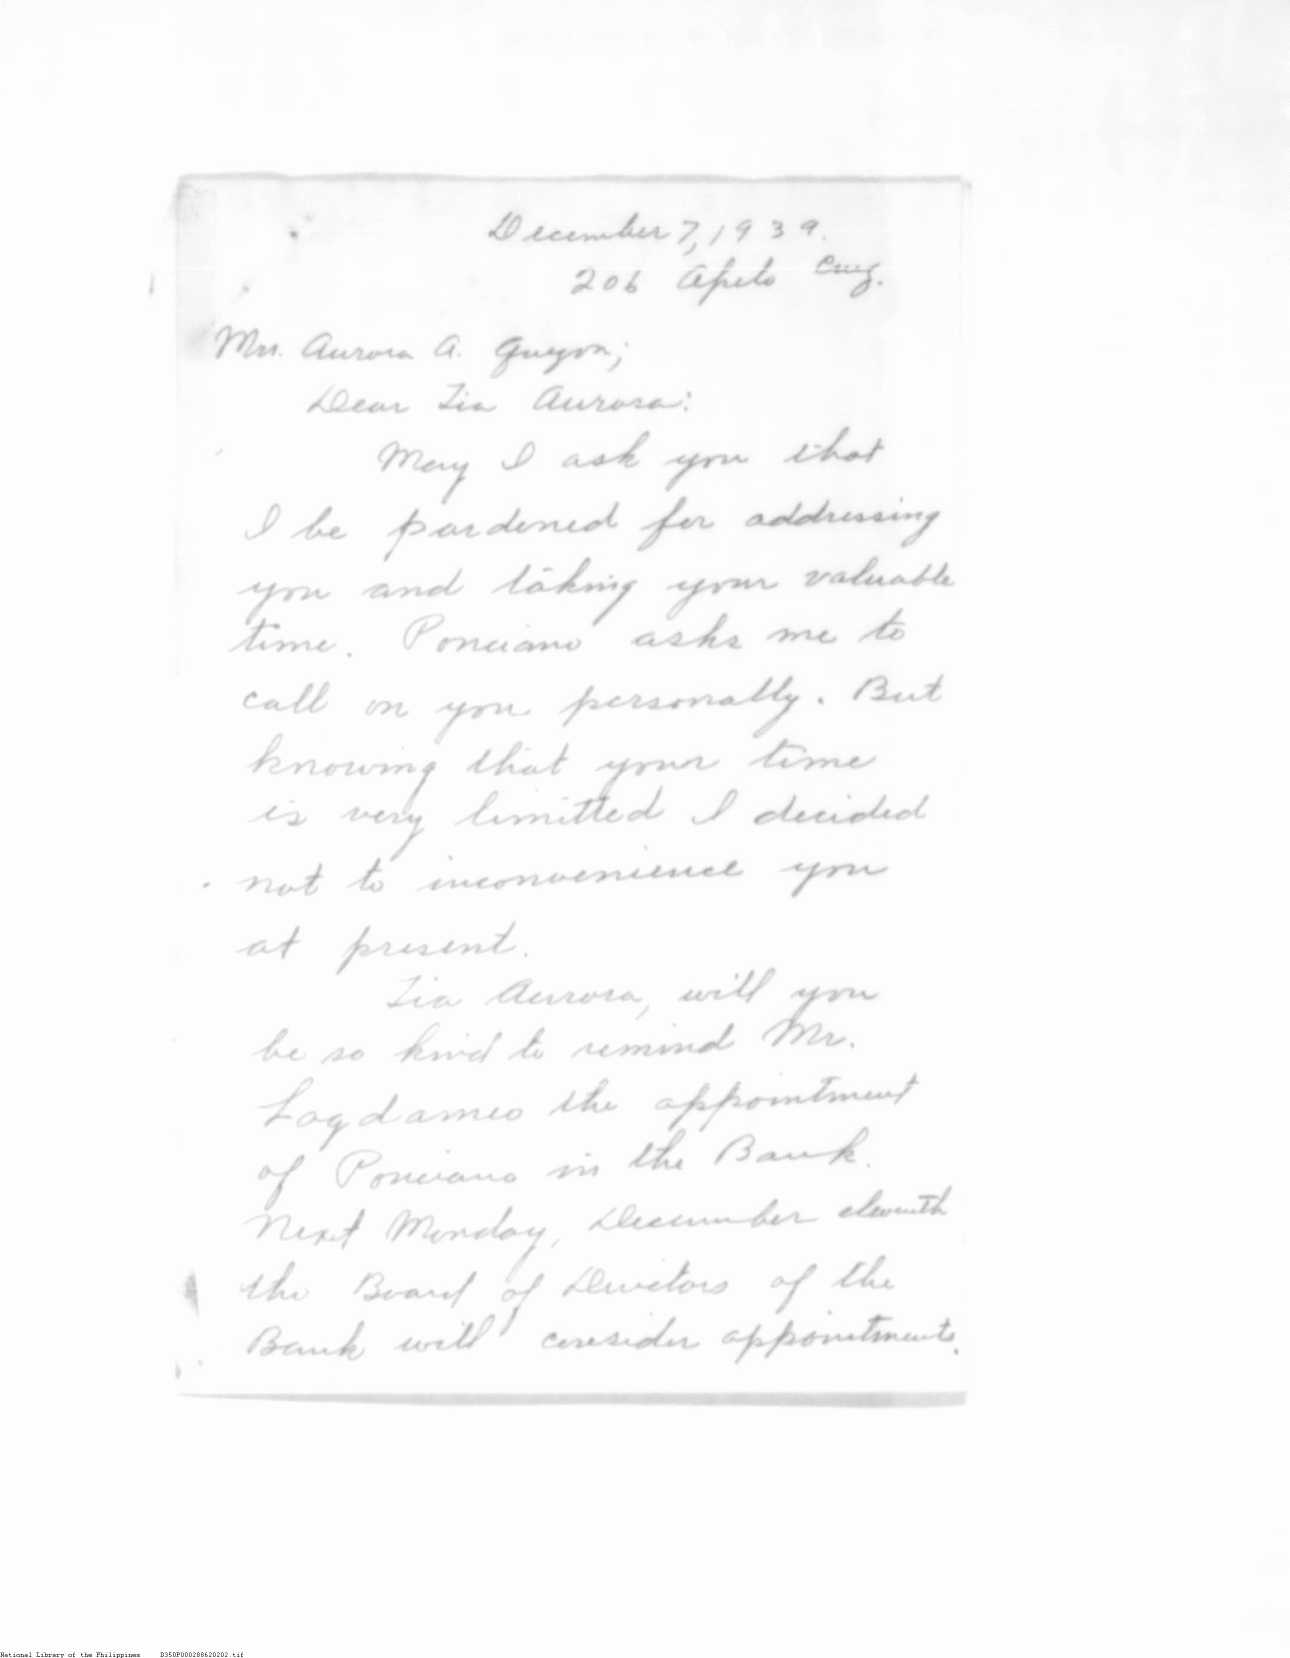 December 7, 1939.
206 Apelo Cruz.
Mrs. Aurora A. Quezon;
Dear Tia Aurora:
May I ask you that
I be pardoned for addressing
you and taking your valuable
time. Ponciano asks me to
call on you personally. But
knowing that your time
is very limitted I decided
not to inconvenience you
at present.
Tia Aurora, will you
be so kind to remind Mr.
Lagdameo the appointment
of Ponciano in the Bank.
Next Monday, December eleventh
the Board of Directors of the
Bank will consider appointments.
National Library of the Philippines B350P000288620202.tif